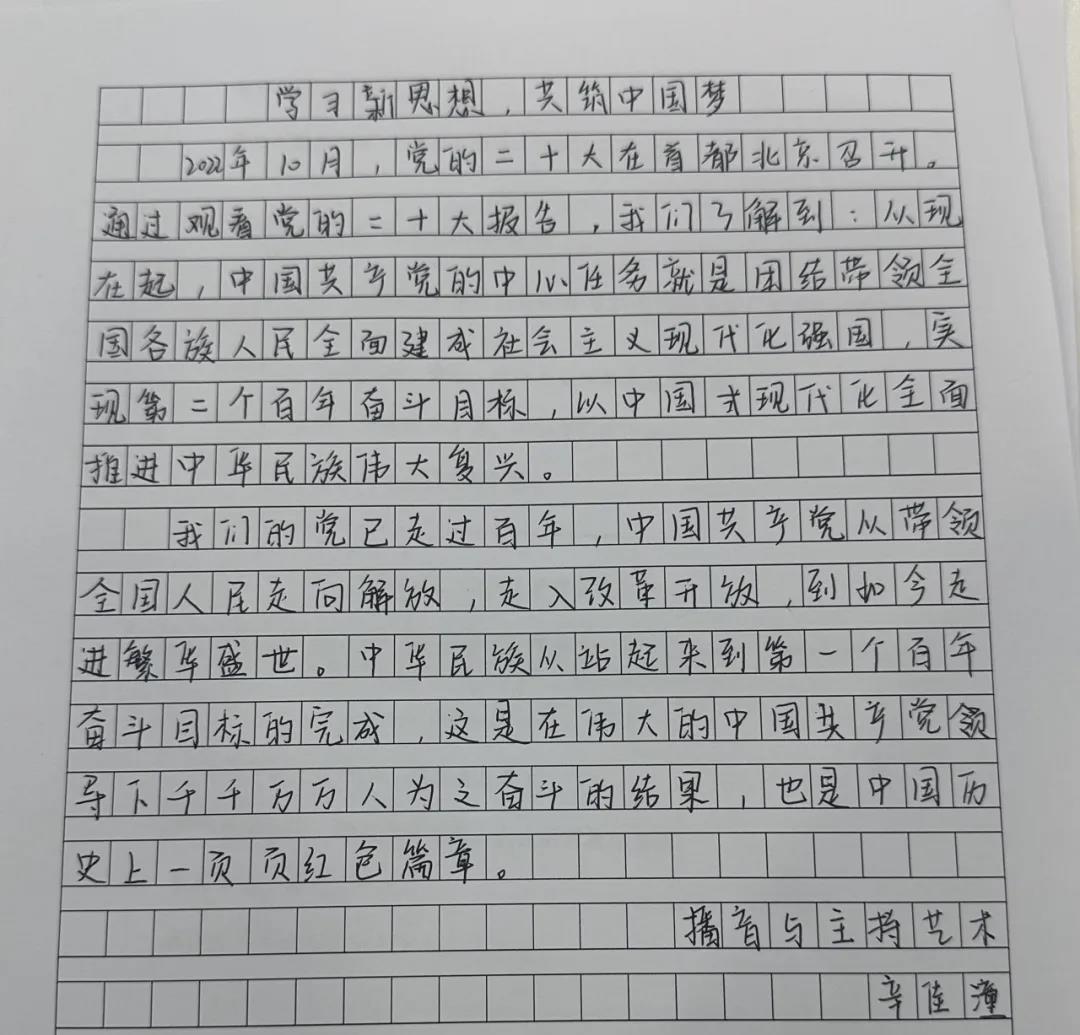 学习新思想，共筑中国梦
2022年10月，党的二十大在首都北京召开。
通过观看党的二十大报告，我们了解到：从现
在起，中国共产党的中心任务就是团结带领全
国各族人民全面建成社会主义现代化强国，实
现第二个百年奋斗目标，以中国式现代化全面
推进中华民族伟大复兴。
我们的党已走过百年，中国共产党从带领
全国人民走向解放，走入改革开放，到如今走
进繁华盛世。中华民族从站起来到第一个百年
奋斗目标的完成，这是在伟大的中国共产党领
导下千千万万人为之奋斗的结果，也是中国历
史上一页页红色篇章。
播音与主持艺术
辛佳潼